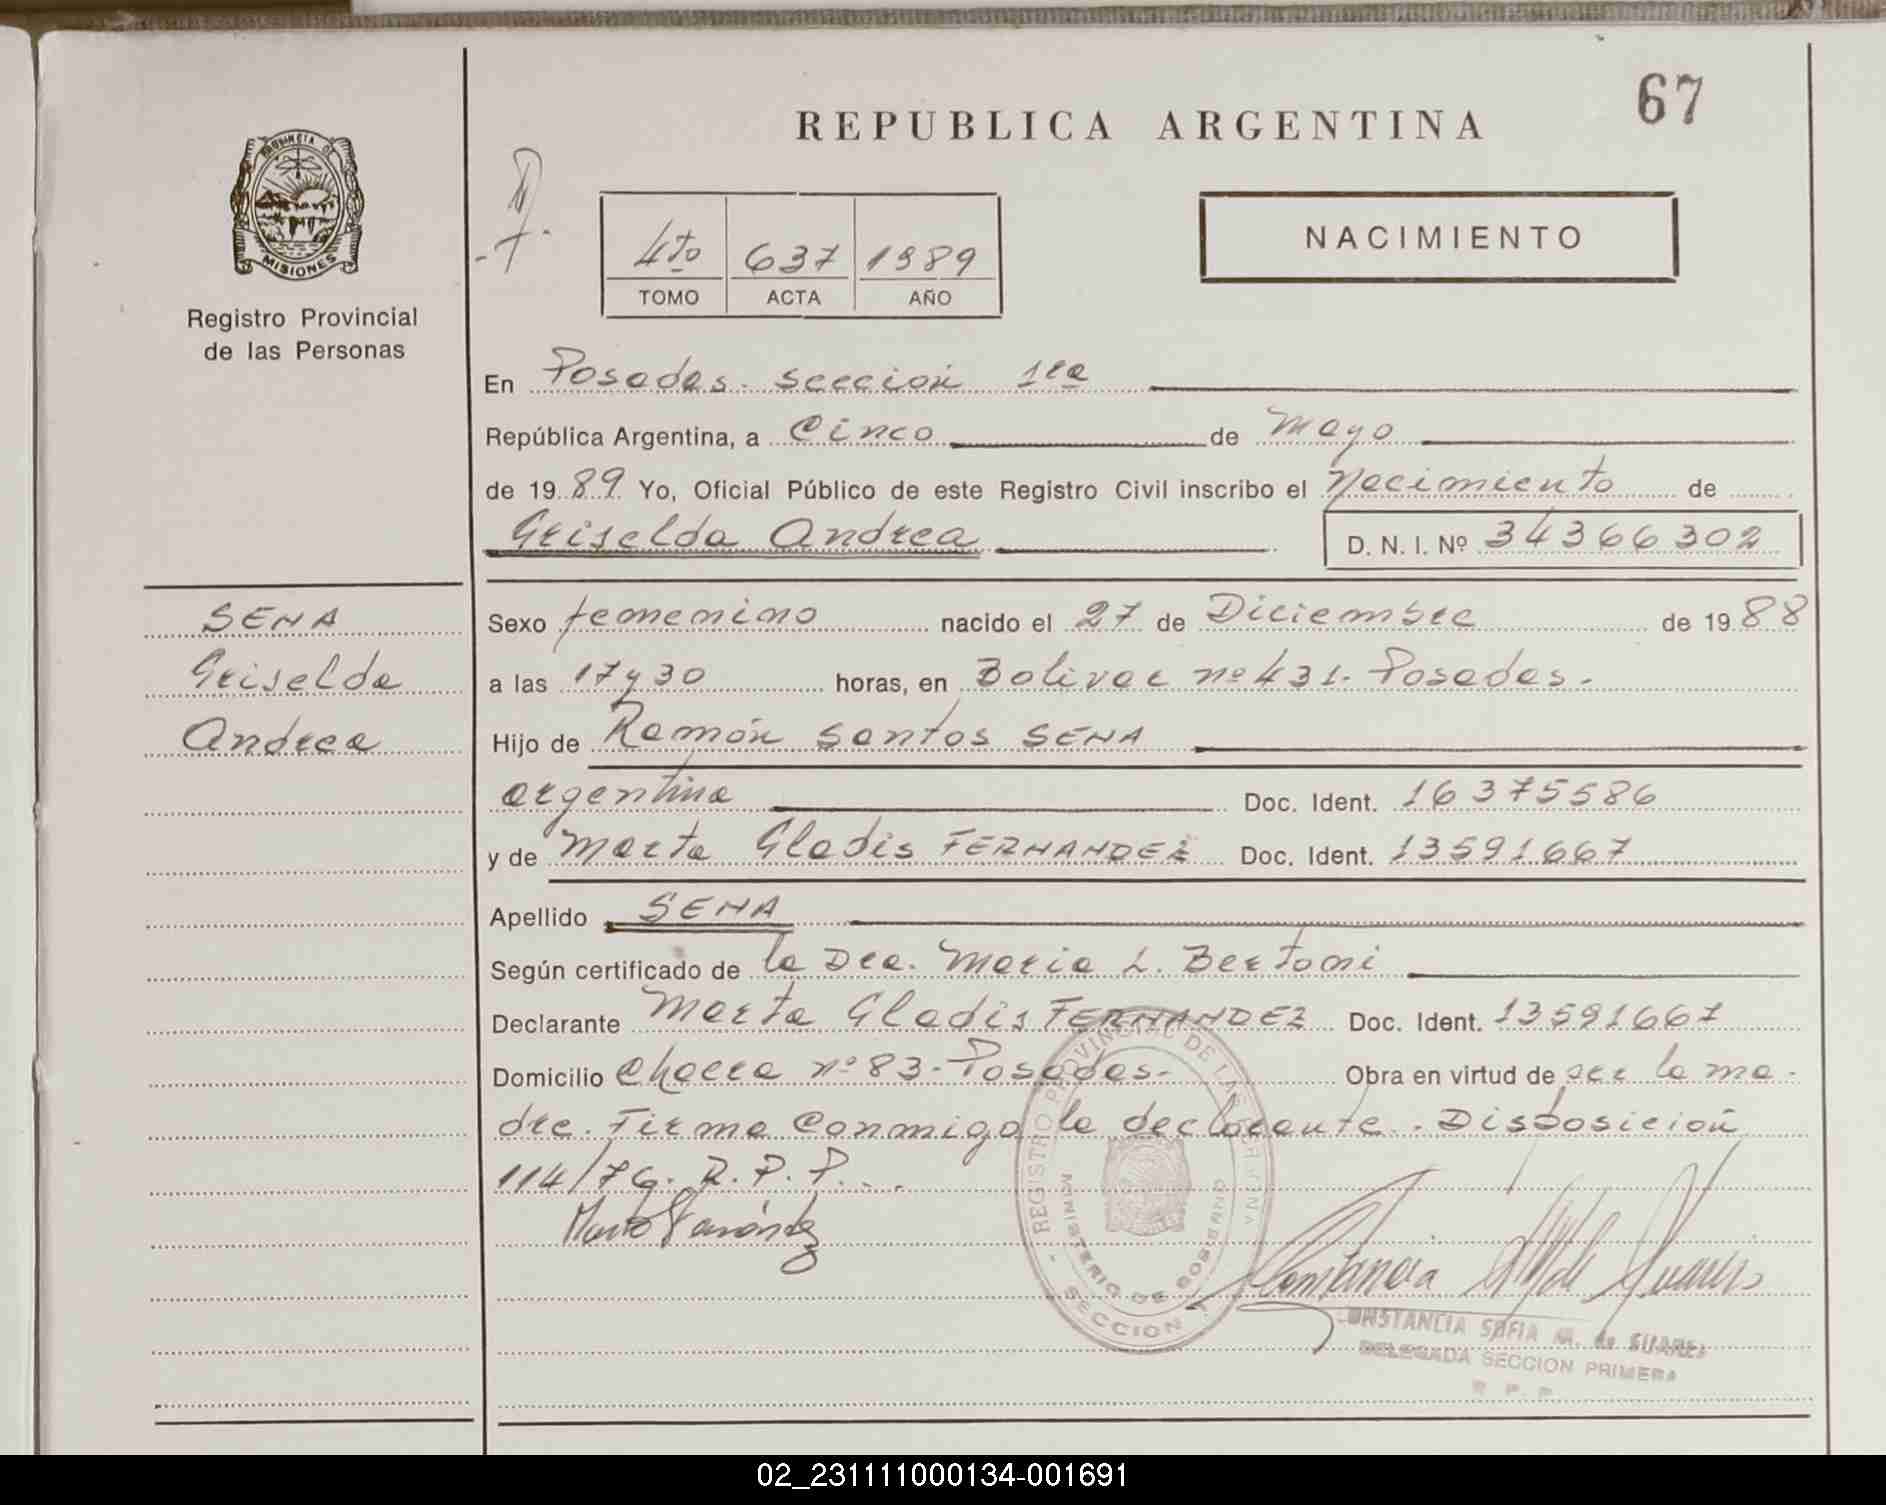 67
REPUBLICA ARGENTINA
PROVINCIA DE
MISIONES
Registro Provincial
de las Personas
4to 637 1989
TOMO ACTA AÑO
NACIMIENTO
En Posadas. seccion 1ra
República Argentina, a Cinco de Mayo
de 1989 Yo, Oficial Público de este Registro Civil inscribo el Nacimiento de
Griselda Andrea D. N. I. Nº 34366302
SENA
Griselda
Andrea
Sexo femenino nacido el 27 de Diciembre de 1988
a las 17 y 30 horas, en Bolivar nº 431. Posadas.
Hijo de Ramón Santos SENA
argentina Doc. Ident. 16375586
y de Marta Gladis FERNANDEZ Doc. Ident. 13591667
Apellido SENA
Según certificado de la Dra. Maria L. Bertoni
Declarante Marta Gladis FERNANDEZ Doc. Ident. 13591667
Domicilio Chacra nº 83. Posadas. Obra en virtud de ser la ma-
dre. Firma Conmigo la declarante. Disposición
114/79. R. P. P...
Marta Fernández
REGISTRO PROVINCIAL DE LAS PERSONAS
MINISTERIO DE GOBIERNO
SECCION 1
Constancia M de Suarez
CONSTANCIA SOFIA M. de SUAREZ
DELEGADA SECCION PRIMERA
R. P. P.
02_231111000134-001691